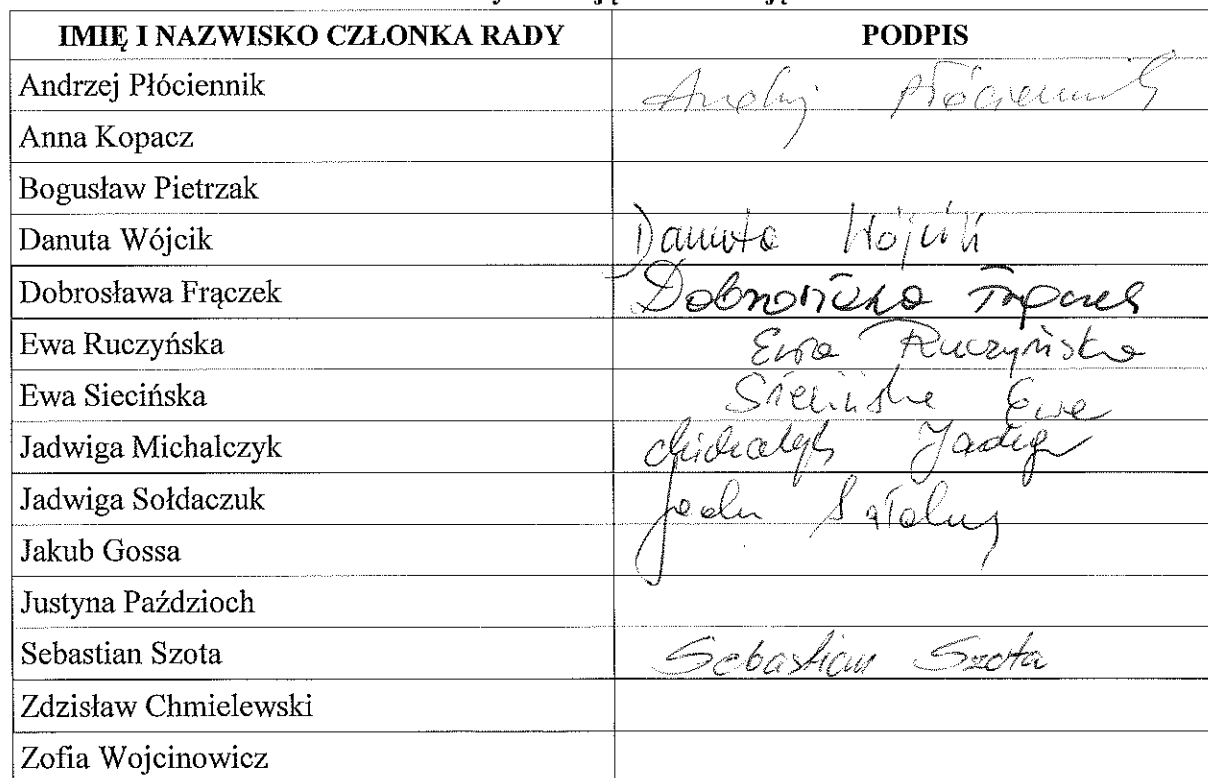 IMIĘ I NAZWISKO CZŁONKA RADY PODPIS
Andrzej Płóciennik Andrzej Płóciennik
Anna Kopacz
Bogusław Pietrzak
Danuta Wójcik Danuta Wójcik
Dobrosława Frączek Dobrosława Frączek
Ewa Ruczyńska Ewa Ruczyńska
Ewa Siecińska Siecińska Ewa
Jadwiga Michalczyk Michalczyk Jadwiga
Jadwiga Sołdaczuk
Jakub Gossa
Justyna Paździoch
Sebastian Szota Sebastian Szota
Zdzisław Chmielewski
Zofia Wojcinowicz